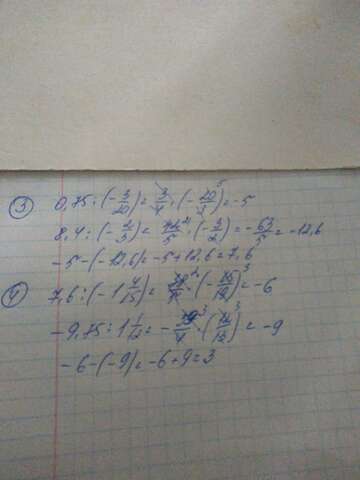 ③ 0,75 : (-3/20) = 3/4 · (-20/3)⁵ = -5
8,4 : (-2/3) = 42/5 ²¹ · (-3/2) = -63/5 = -12,6
-5 - (-12,6) = -5 + 12,6 = 7,6
④ 7,6 : (-1 4/15) = · (-15/19)³ = -6
-9,75 : 1 1/12 = - /4 · (12/13)³ = -9
-6 - (-9) = -6 + 9 = 3